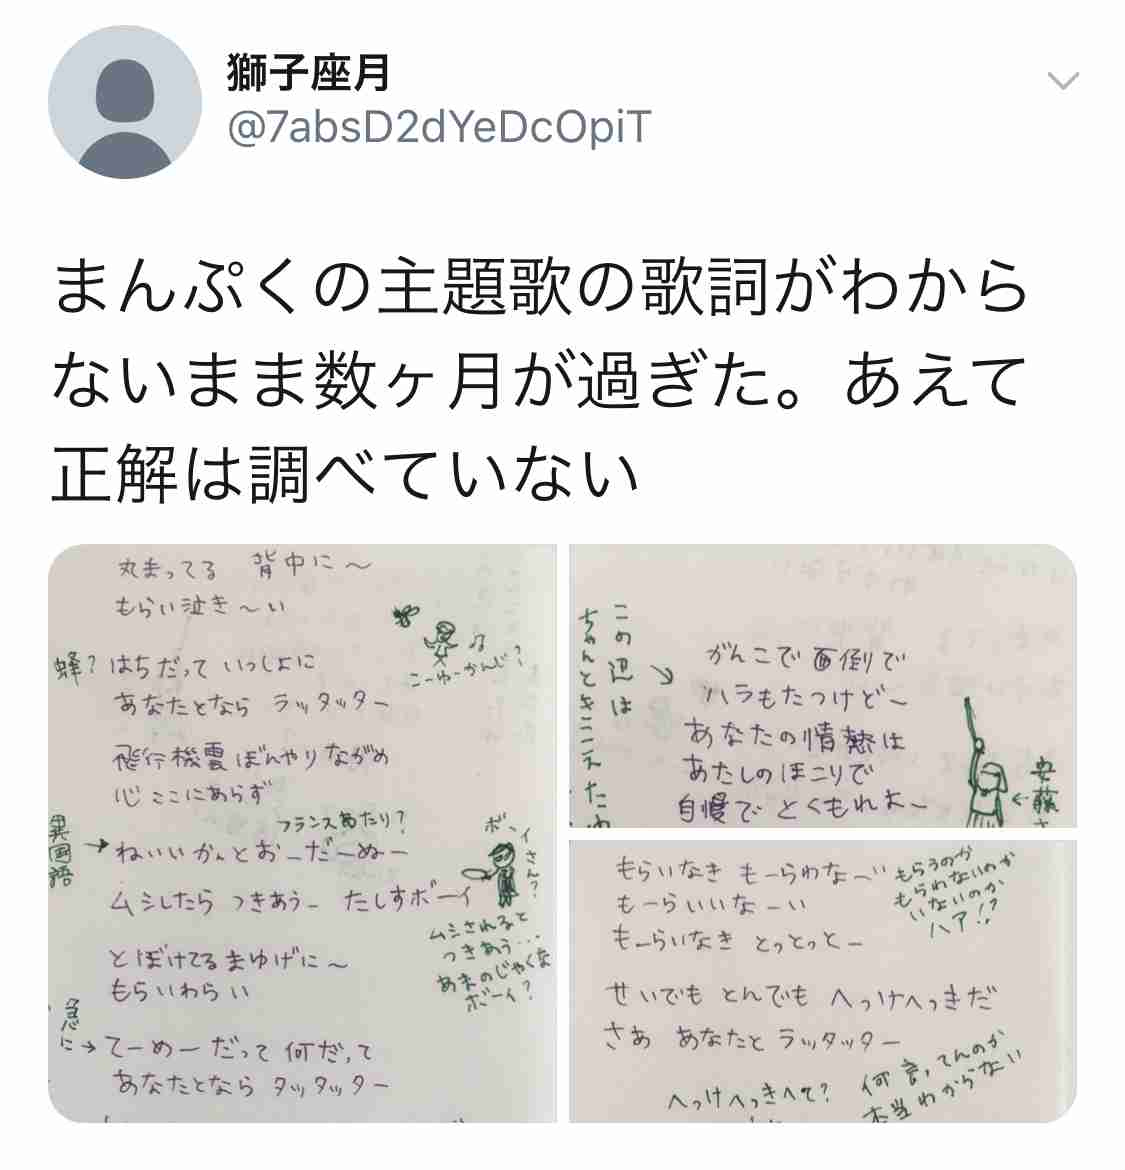 獅子座月
@7absD2dYeDcOpiT
まんぷくの主題歌の歌詞がわから
ないまま数ヶ月が過ぎた。あえて
正解は調べていない
丸まってる 背中に〜
もらい泣き〜い
こーゆーかんじ?
蜂? はちだって いっしょに
あなたとなら ラッタッター
飛行機雲 ぼんやりながめ
心 ここにあらず
フランスあたり?
異国語→ ねぃいいかんとおーだーぬー
ボーイさん?
ムシしたら つきあうー たしすボーイ
ムシされると
つきあう...
あまのじゃくな
ボーイ?
とぼけてるまゆげに〜
もらいわらい
急に→ てーめーだって 何だって
あなたとなら タッタッター
この辺は
ちゃんときこえた
がんこで 面倒で
ハラもたつけどー
あなたの情熱は
あたしのほこりで
自慢で とくもれよー
もらいなき もーらわなーい
もーらいいなーい
もーらいなき とっとっとー
もらうのか
もらわないのか
いないのか
ハア!?
せいでも とんでも へっけへっきだ
さあ あなたと ラッタッター
へっけへっきへて?
何言ってんのか
本当わからない